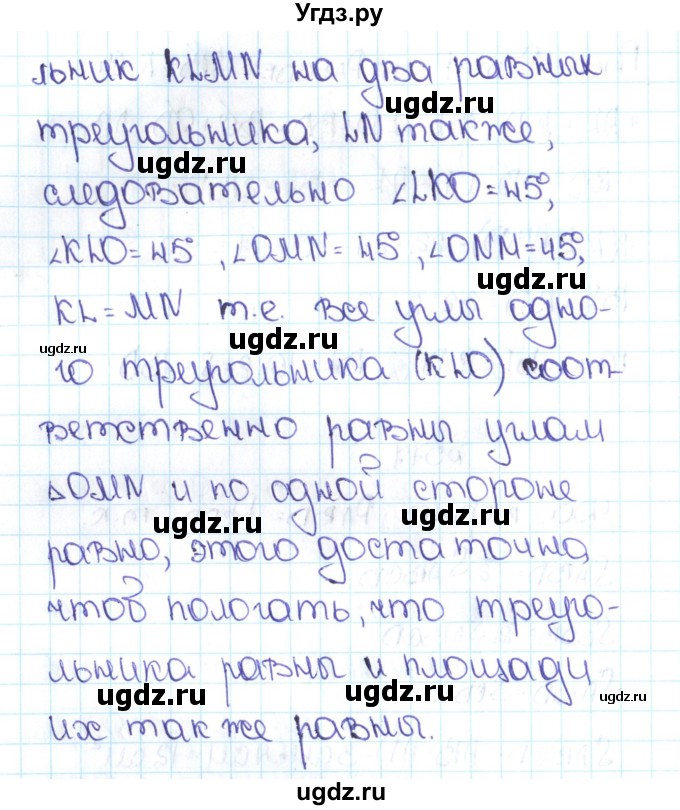 Угдз.ру
льник KLMN на два равных
ugdz.ru
треугольника, LN также,
ugdz.ru
следовательно ∠LKO=45°,
∠KLO=45°, ∠OMN=45°, ∠ONM=45°,
ugdz.ru
KL=MN т.е. все углы одно-
ugdz.ru ugdz.ru
го треугольника (KLO) соот-
ветственно равны углам
△OMN и по одной стороне
ugdz.ru ugdz.ru
равно, этого достаточно,
чтоб пологать, что треуго-
льника равны и площади
ugdz.ru ugdz.ru ugdz.ru
их так же равны.
ugdz.ru